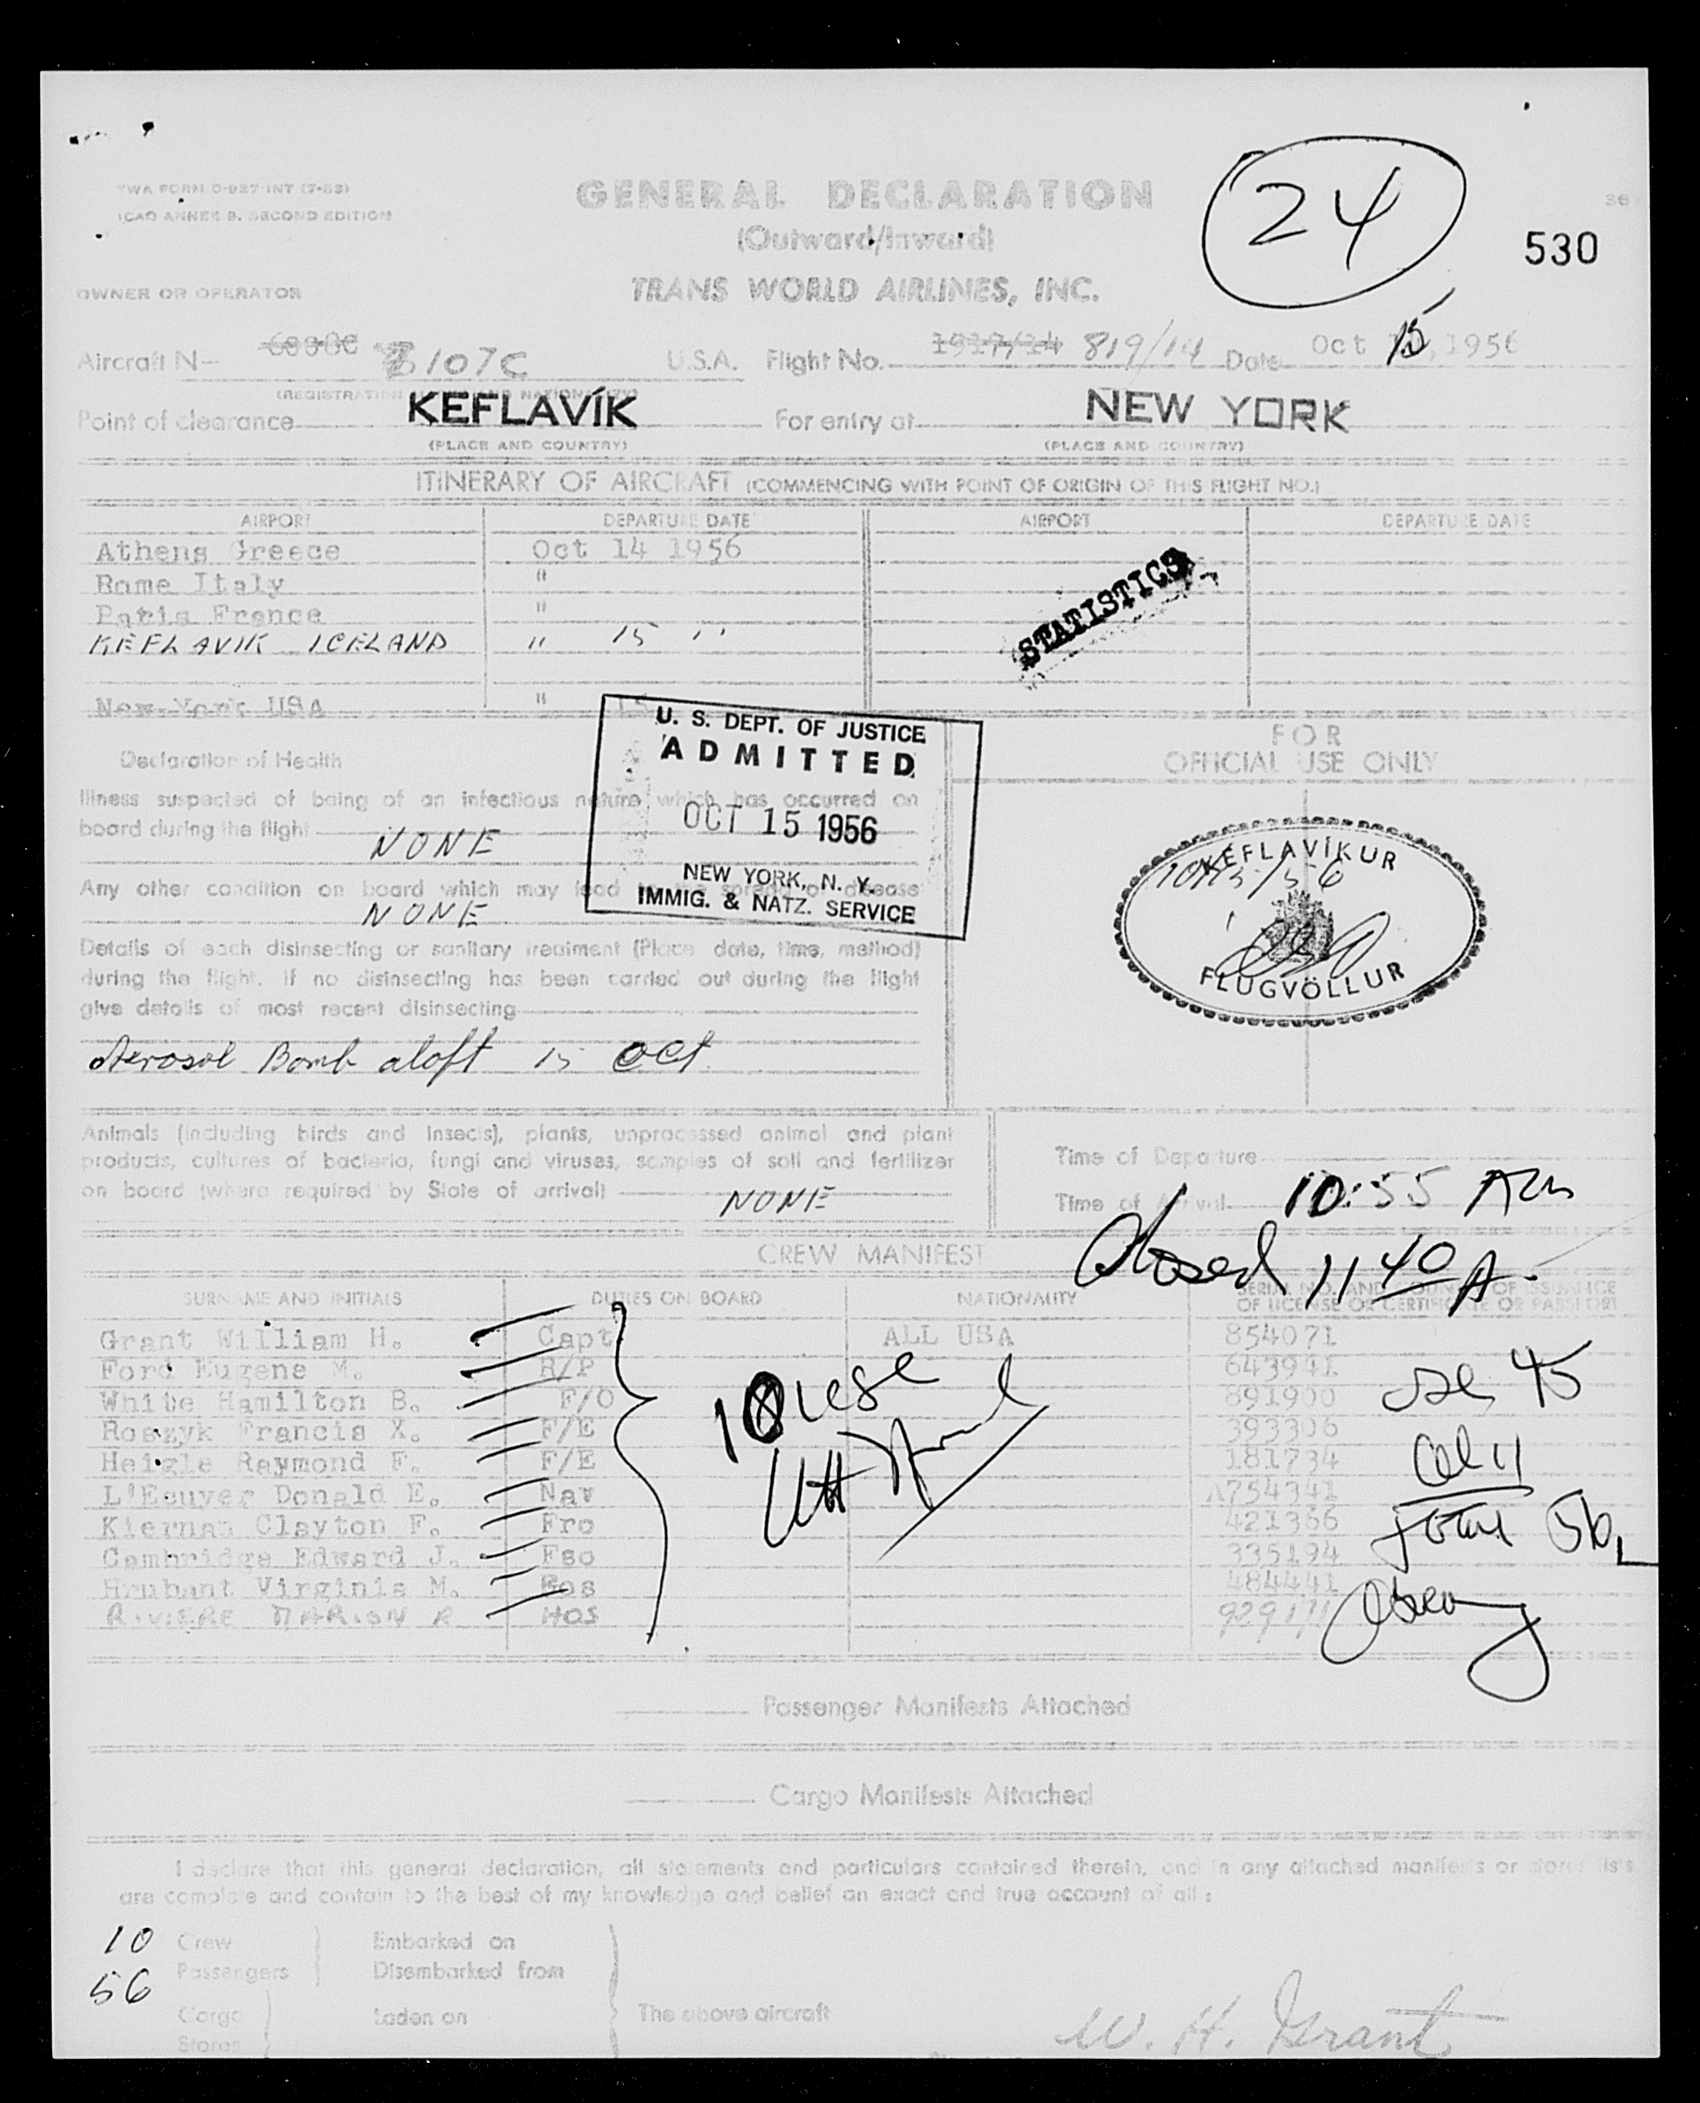 TWA FORM O-927-INT (7-53)
ICAO ANNEX 9, SECOND EDITION
GENERAL DECLARATION
(Outward/Inward)
24
530
OWNER OR OPERATOR
TRANS WORLD AIRLINES, INC.
Aircraft N- 107C U.S.A. Flight No. 1917/14 819/14 Date Oct 15, 1956
(REGISTRATION AND NATIONALITY)
Point of clearance KEFLAVÍK For entry at NEW YORK
(PLACE AND COUNTRY) (PLACE AND COUNTRY)
ITINERARY OF AIRCRAFT (COMMENCING WITH POINT OF ORIGIN OF THIS FLIGHT NO.)
AIRPORT DEPARTURE DATE AIRPORT DEPARTURE DATE
Athens Greece Oct 14 1956
Rome Italy "
Paris France "
KEFLAVIK ICELAND " 15 "
New York USA " 15
STATISTICS
U. S. DEPT. OF JUSTICE
ADMITTED
OCT 15 1956
NEW YORK, N. Y.
IMMIG. & NATZ. SERVICE
FOR
OFFICIAL USE ONLY
Declaration of Health
Illness suspected of being of an infectious nature which has occurred on
board during the flight NONE
Any other condition on board which may lead to the spread of disease
NONE
Details of each disinsecting or sanitary treatment (Place date, time, method)
during the flight. If no disinsecting has been carried out during the flight
give details of most recent disinsecting
Aerosol Bomb aloft 15 Oct
KEFLAVÍKUR
FLUGVÖLLUR
Animals (including birds and insects), plants, unprocessed animal and plant
products, cultures of bacteria, fungi and viruses, samples of soil and fertilizer
on board (where required by State of arrival) NONE
Time of Departure
Time of Arrival 10:55 Am
Closed 11 40 A.
CREW MANIFEST
SURNAME AND INITIALS DUTIES ON BOARD NATIONALITY SERIAL NO. AND COUNTRY OF ISSUANCE
OF LICENSE OR CERTIFICATE OR PASSPORT
Grant William H. Capt ALL USA 854071
Ford Eugene M. R/P 643941
White Hamilton B. F/O 891900
Roszyk Francis X. F/E 393306
Heigle Raymond F. F/E 181734
L'Ecuyer Donald E. Nav A754341
Kiernan Clayton F. Fro 421366
Cambridge Edward J. Fso 335194
Hrubant Virginia M. Hos 484441
RIVIERE MARION R HOS 929171
10 USC
45
11
Total 56
Passenger Manifests Attached
Cargo Manifests Attached
I declare that this general declaration, all statements and particulars contained therein, and in any attached manifests or stores lists,
are complete and contain to the best of my knowledge and belief an exact and true account of all:
10 Crew Embarked on
56 Passengers Disembarked from
Cargo Laden on The above aircraft
Stores
W. H. Grant